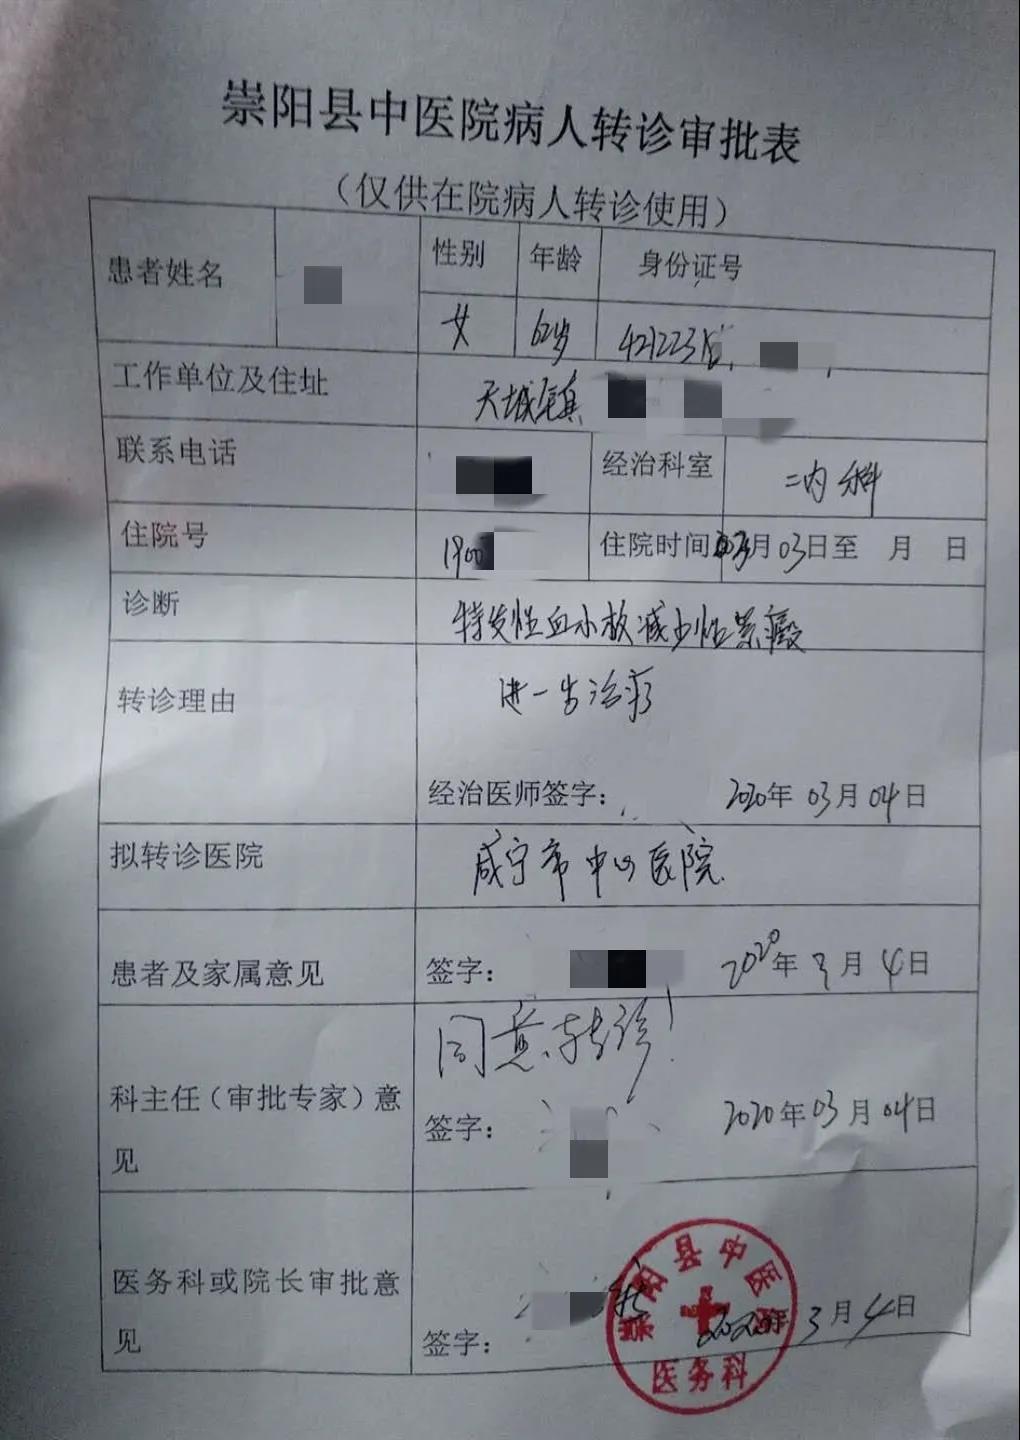 崇阳县中医院病人转诊审批表
（仅供在院病人转诊使用）
患者姓名 性别 年龄 身份证号
女 62岁 421223
工作单位及住址 天城镇
联系电话 经治科室 二内科
住院号 1900 住院时间 03月03日至 月 日
诊断 特发性血小板减少性紫癜
转诊理由 进一步治疗
经治医师签字： 2020年03月04日
拟转诊医院 咸宁市中心医院
患者及家属意见 签字： 2020年3月4日
同意转诊！
科主任（审批专家）意见 签字： 2020年03月04日
医务科或院长审批意见 签字： 2020年3月4日
崇阳县中医院
医务科